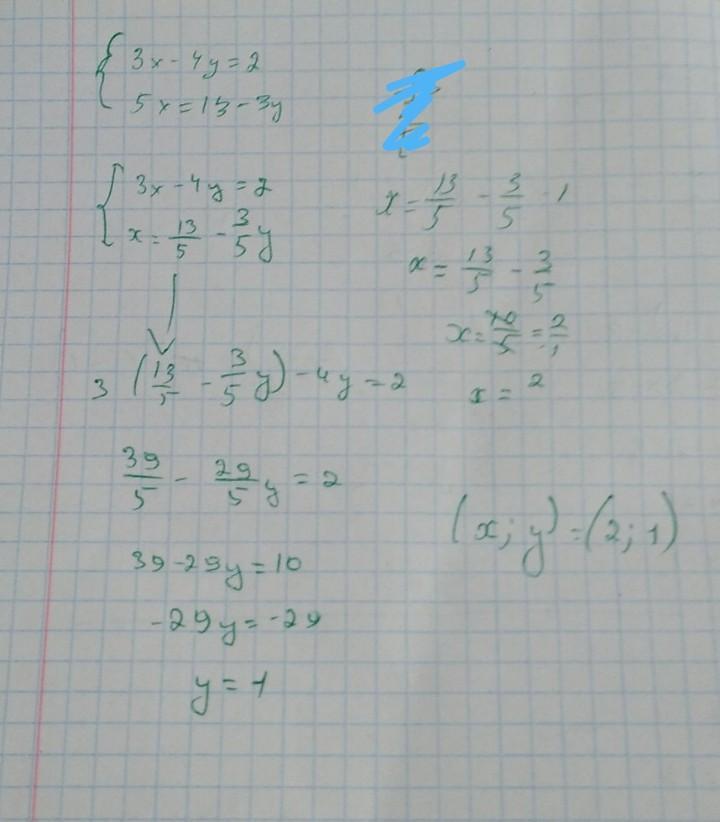 3x - 4y = 2
5x = 13 - 3y
3x - 4y = 2
x = 13/5 - 3/5 y
3 (13/5 - 3/5 y) - 4y = 2
39/5 - 29/5 y = 2
39 - 29y = 10
-29y = -29
y = 1
x = 13/5 - 3/5 · 1
x = 13/5 - 3/5
x = 10/5 = 2/1
x = 2
(x; y) = (2; 1)